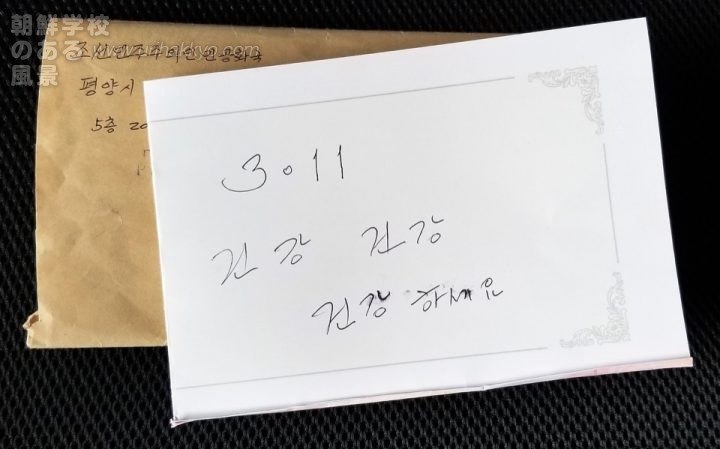 朝鮮学校
のある
風景
조선민주주의인민공화국
평양시
5층 20
3.11
건강 건강
건강하세요